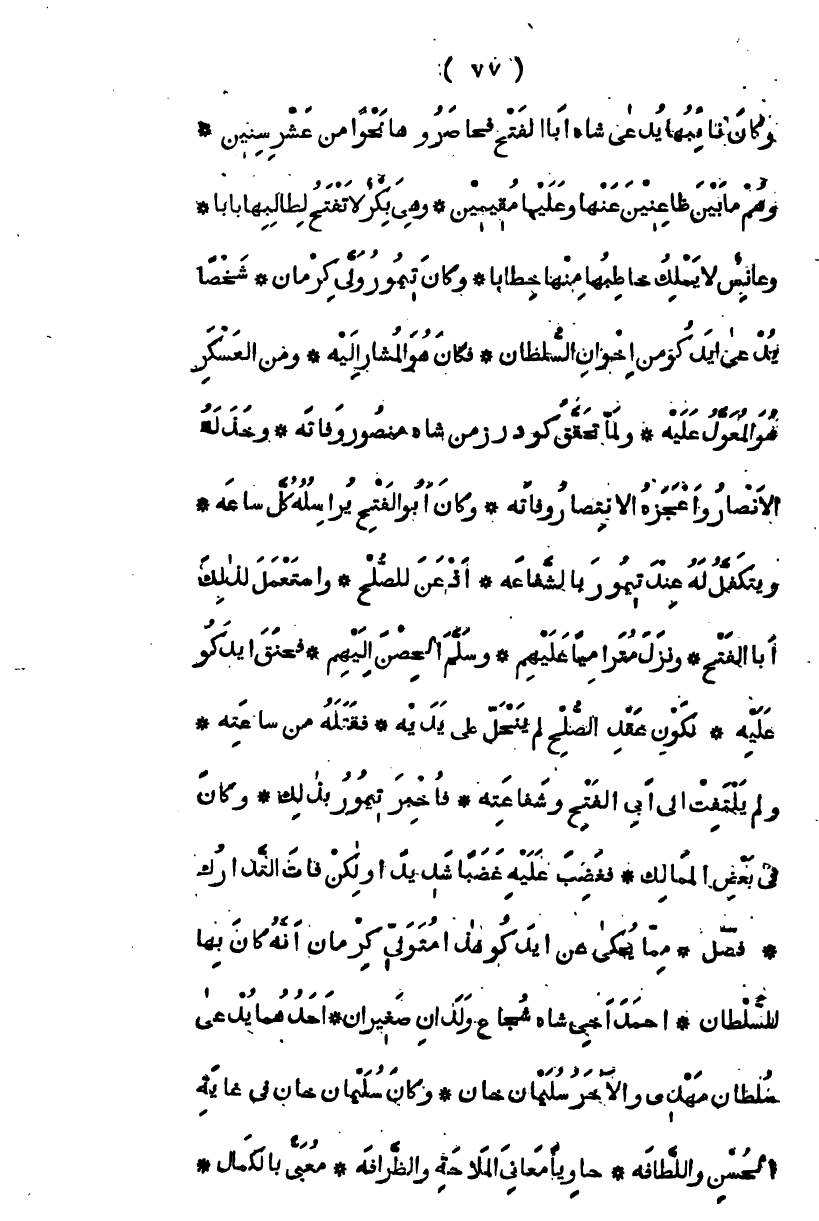 ( ٧٧ )
وكانَ نائِبُها يُدعى شاه اَبا الفَتْح فحاصَرُوها نَحْوًا من عَشْر سِنِين *
وهُمْ مابَيْنَ ظاعِنْينَ عَنْها وعَلَيْها مُقِيمِيْن * وهِيَ بِكْرٌ لا تَفْتَحُ لِطالِبِها بابا *
وعانِسٌ لا يَمْلِكُ خاطِبُها مِنْها خِطابا * وكانَ تِيمُورُ وَلّى كِرْمان * شَخْصًا
يُدْعىٰ ايدَكُو من اِخْوانِ السُّلطان * فكانَ هُوَ المُشارُ اِلَيْه * ومن العَسْكَرِ
هُوَ المُعَوَّلُ عَلَيْه * ولمّا تحَقَّقَ كودرز من شاه منصُور وَفاتَه * وخَذَلَهُ
الاَنْصارُ واَعْجَزَهُ الانتِصارُ وفاتَه * وكانَ اَبُو الفَتْحِ يُراسِلُهُ كُلَّ ساعَه *
ويتكَفَّلُ لَهُ عِنْدَ تِيمُورَ بالشَّفاعَه * اَذْعَنَ للصُّلْح * واسْتَعْمَلَ لذٰلِكَ
اَبا الفَتْح * ونزَلَ مُتَرامِيًا عَلَيْهِم * وسَلَّمَ الحِصْنَ اِلَيْهِم * فحنِقَ ايدَكُو
عَلَيْه * لكَوْنِ عَقْدِ الصُّلْحِ لم يَنْحَلَّ على يَدَيْه * فقَتَلَهُ من ساعَتِه *
ولم يَلْتَفِتْ الى اَبي الفَتْحِ وشَفاعَتِه * فاُخْبِرَ تِيمُورُ بذٰلِك * وكانَ
في بَعْضِ المَمالِك * فغَضِبَ عَلَيْهِ غَضَبًا شَدِيدًا ولٰكِنْ فاتَ التَّدارُك
* فصل * مِمّا يُحكىٰ عن ايدَكُو هٰذا مُتَوَلّي كِرْمان اَنَّهُ كانَ بِها
للسُّلْطان * احمَدَ اَخِي شاه شُجاع ولَدانِ صَغِيران * اَحَدُهُما يُدْعىٰ
سُلطان مَهْدى والآخَرُ سُلَيْمان خان * وكانَ سُلَيْمان خان في غايَةِ
الحُسْنِ واللَّطافَه * حاوِيًا مَعانِيَ المَلاحَةِ والظَّرافَه * مُعَبًّى بالكَمال *